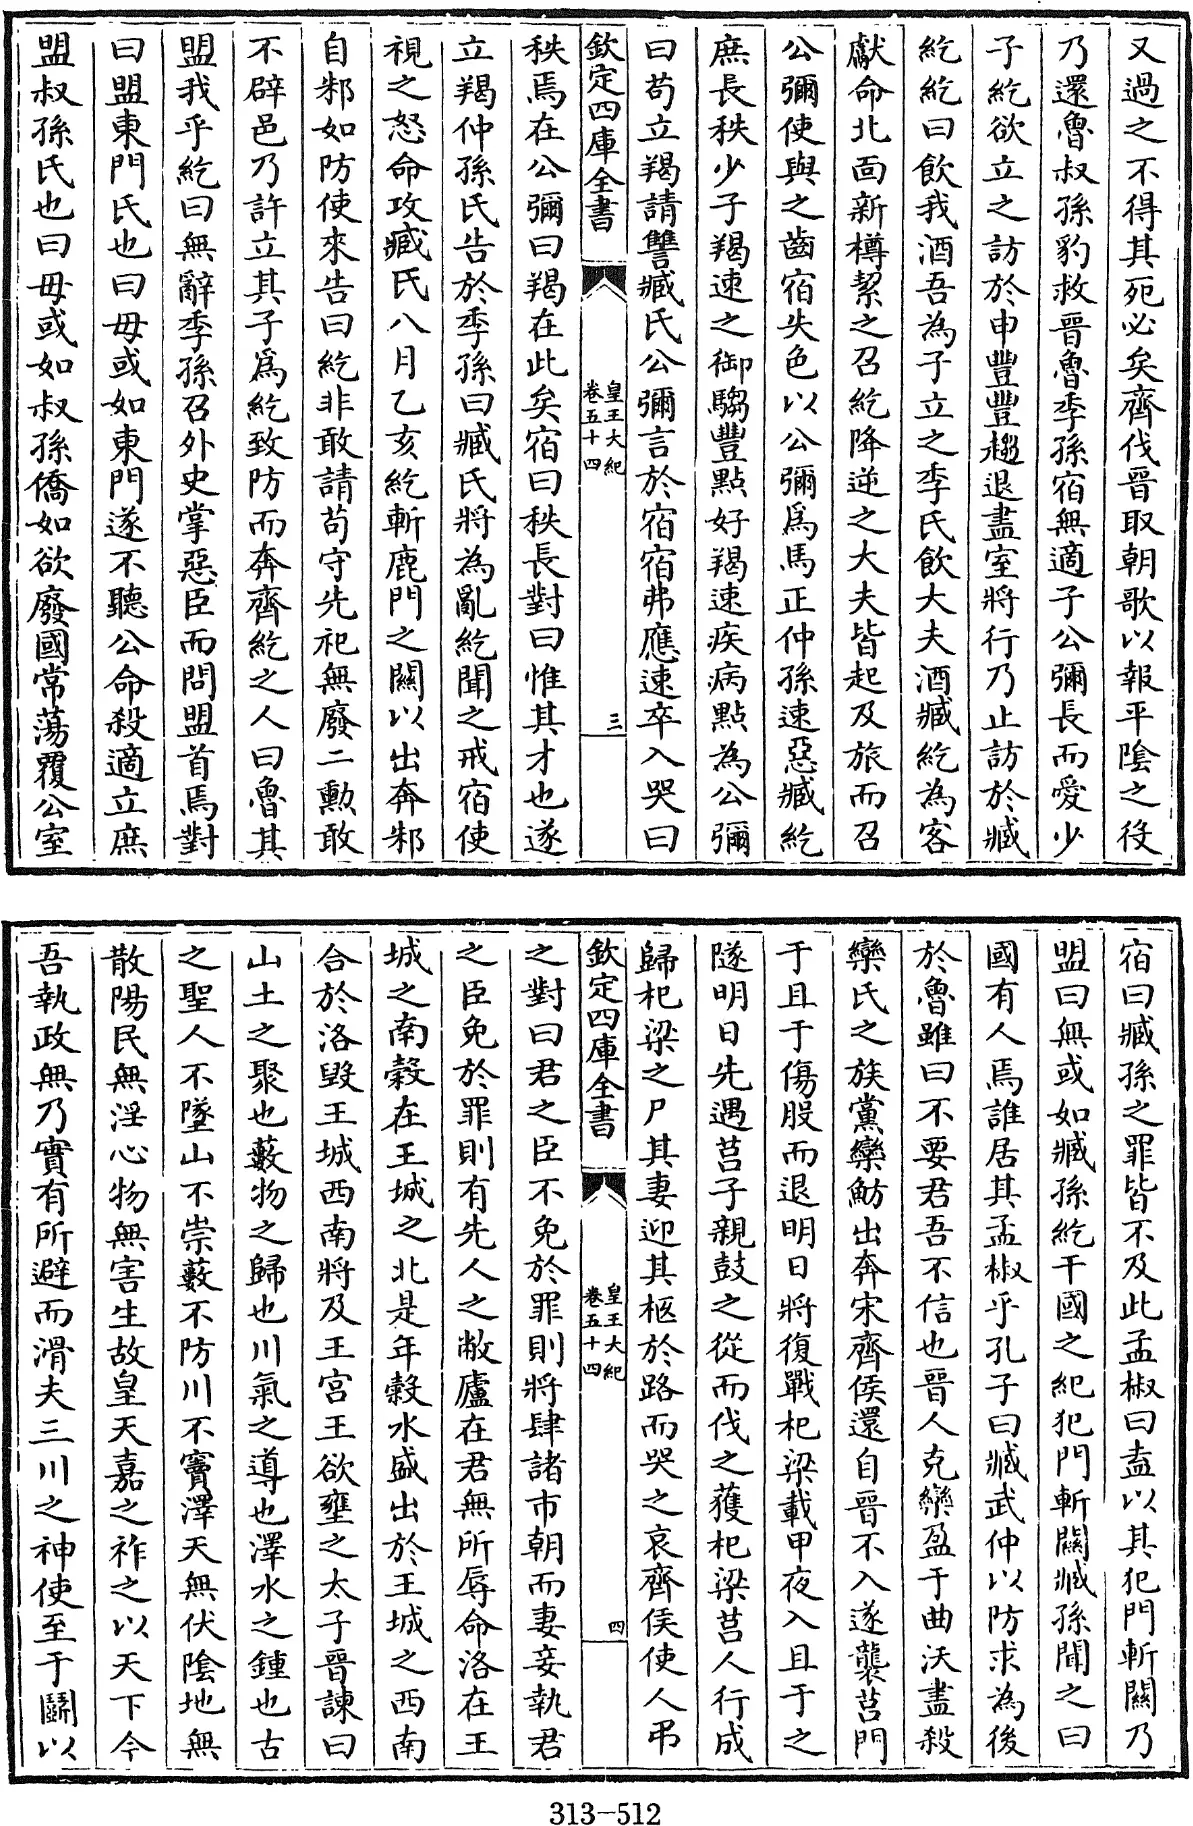 又過之不得其死必矣齊伐晉取朝歌以報平隂之役
乃還魯叔孫豹救晉魯季孫宿無適子公彌長而愛少
子紇欲立之訪於申豐豐趨退盡室將行乃止訪於臧
紇紇曰飲我酒吾為子立之季氏飲大夫酒臧紇為客
獻命北面新樽絜之召紇降逆之大夫皆起及旅而召
公彌使與之齒宿失色以公彌爲馬正仲孫速惡臧紇
庶長秩少子羯速之御騶豐點好羯速疾病點為公彌
曰苟立羯請讐臧氏公彌言於宿宿弗應速卒入哭曰
欽定四庫全書
皇王大紀
卷五十四
三
秩焉在公彌曰羯在此矣宿曰秩長對曰惟其才也遂
立羯仲孫氏告於季孫曰臧氏將為亂紇聞之戒宿使
視之怒命攻臧氏八月乙亥紇斬鹿門之關以出奔邾
自邾如防使來告曰紇非敢請苟守先祀無廢二勲敢
不辟邑乃許立其子爲紇致防而奔齊紇之人曰魯其
盟我乎紇曰無辭季孫召外史掌惡臣而問盟首焉對
曰盟東門氏也曰毋或如東門遂不聽公命殺適立庶
盟叔孫氏也曰毋或如叔孫僑如欲廢國常蕩覆公室
宿曰臧孫之罪皆不及此孟椒曰盍以其犯門斬關乃
盟曰無或如臧孫紇干國之紀犯門斬關臧孫聞之曰
國有人焉誰居其孟椒乎孔子曰臧武仲以防求為後
於魯雖曰不要君吾不信也晉人克欒盈于曲沃盡殺
欒氏之族黨欒魴出奔宋齊侯還自晉不入遂襲莒門
于且于傷股而退明日將復戰杞梁載甲夜入且于之
隧明日先遇莒子親鼓之從而伐之獲杞梁莒人行成
歸杞梁之尸其妻迎其柩於路而哭之哀齊侯使人弔
欽定四庫全書
皇王大紀
卷五十四
四
之對曰君之臣不免於罪則將肆諸市朝而妻妾執君
之臣免於罪則有先人之敝廬在君無所辱命洛在王
城之南穀在王城之北是年穀水盛出於王城之西南
合於洛毀王城西南將及王宫王欲壅之太子晉諫曰
山土之聚也藪物之歸也川氣之導也澤水之鍾也古
之聖人不墜山不崇藪不防川不竇澤天無伏隂地無
散陽民無淫心物無害生故皇天嘉之祚之以天下今
吾執政無乃實有所避而滑夫三川之神使至于鬭以
313-512